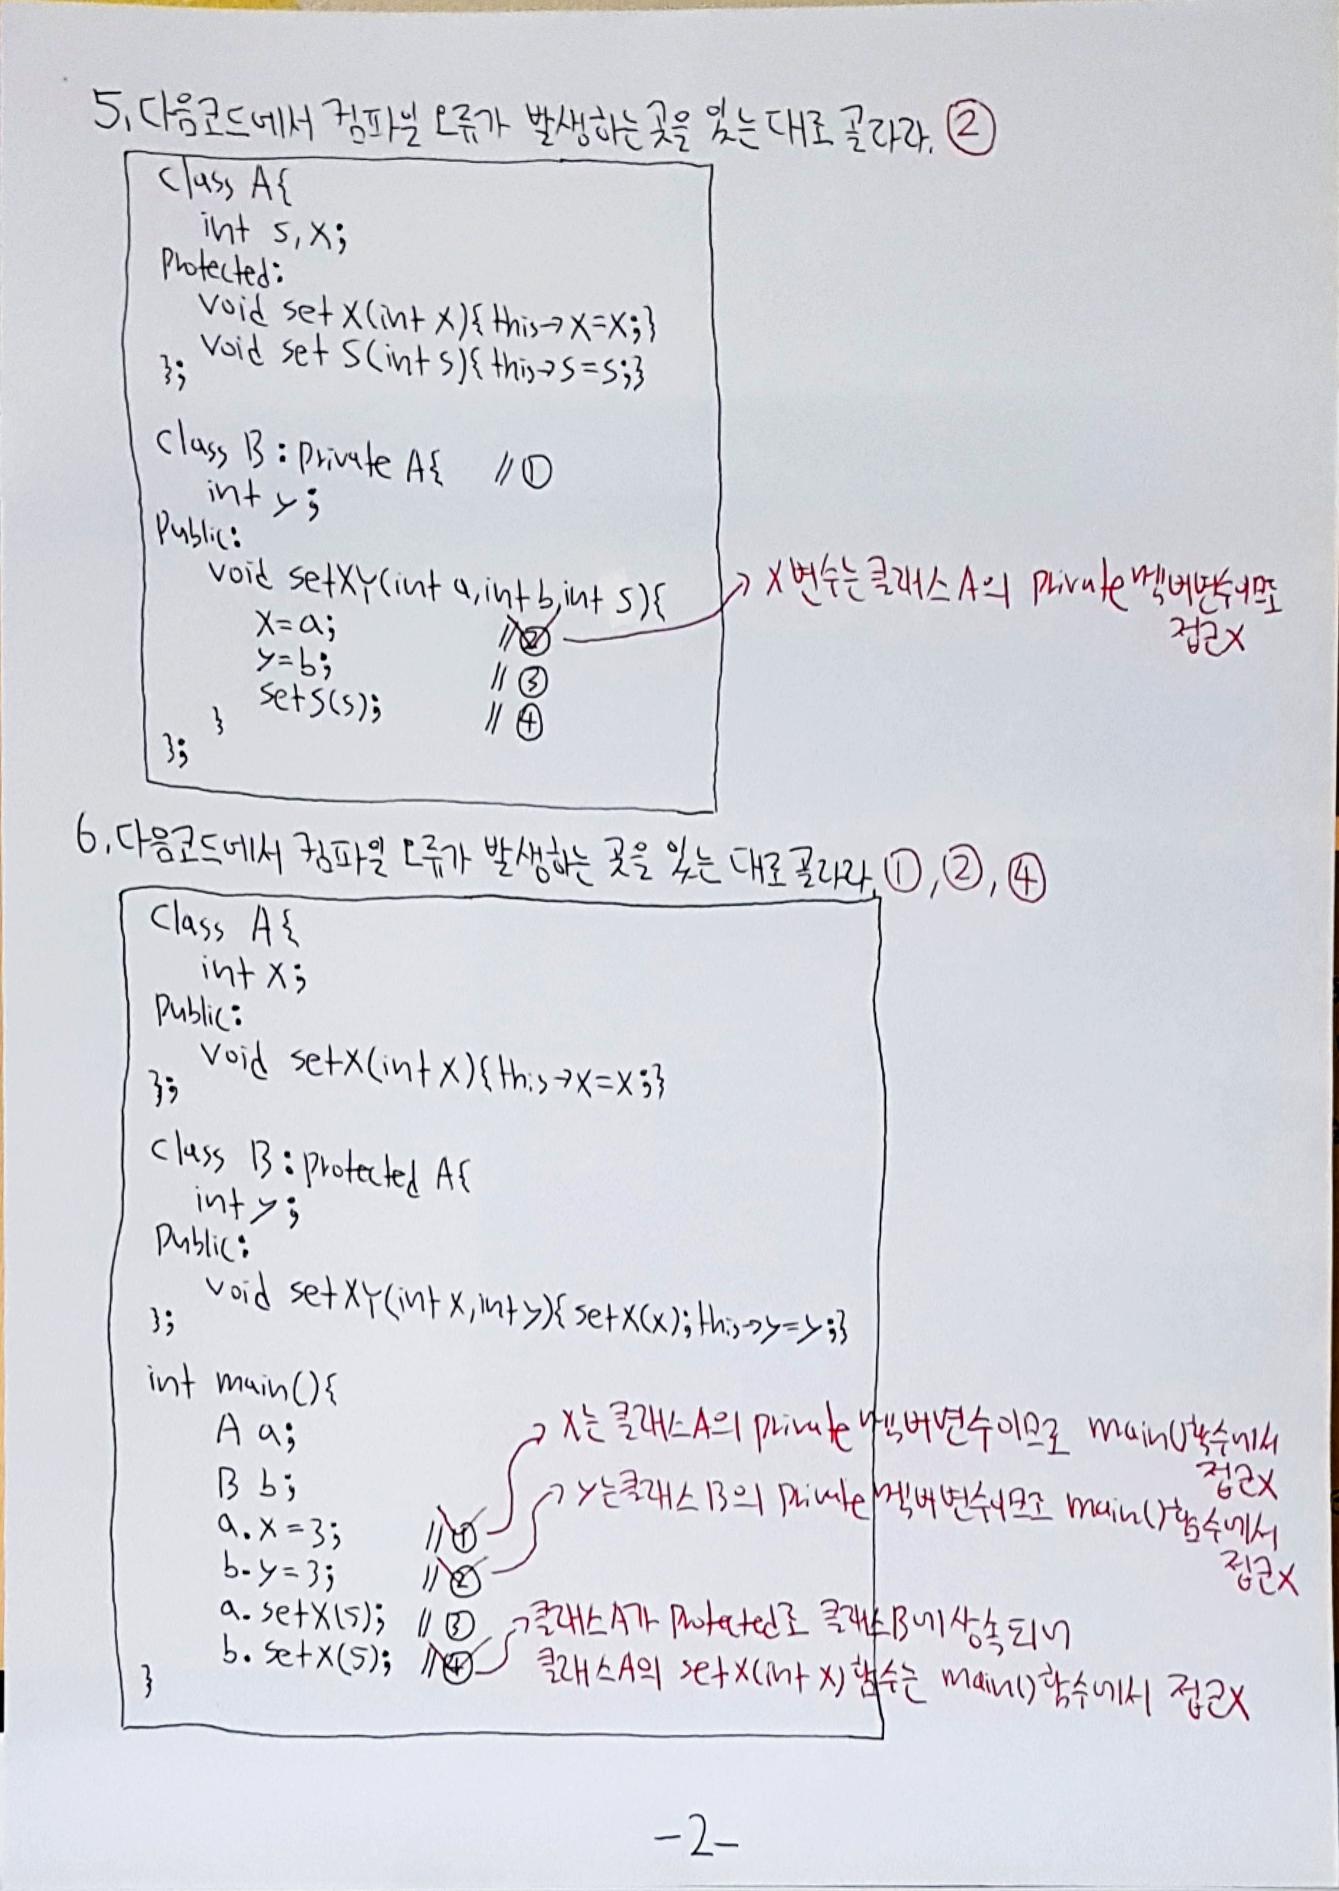 5. 다음코드에서 컴파일 오류가 발생하는 곳을 있는대로 골라라. ②
class A{
int s, x;
Protected:
void setX(int x){this→x=x;}
void setS(int s){this→s=s;}
};
class B : private A{ //①
int y;
Public:
void setXY(int a, int b, int s){
x=a; //② → x 변수는 클래스 A의 private 멤버변수이므로
접근X
y=b; //③
setS(s); //④
}
};
6. 다음코드에서 컴파일 오류가 발생하는 곳을 있는 대로 골라라. ①, ②, ④
class A{
int x;
Public:
void setX(int x){this→x=x;}
};
class B : protected A{
int y;
Public:
void setXY(int x, int y){setX(x); this→y=y;}
};
int main(){
A a; → x는 클래스A의 private 멤버변수이므로 main()함수에서
접근X
B b; → y는클래스B의 private 멤버변수이므로 main()함수에서
접근X
a.x=3; //①
b.y=3; //②
a.setX(5); //③ → 클래스A가 Protected로 클래스B에 상속되니
b.setX(5); //④ 클래스A의 setX(int x)함수는 main()함수에서 접근X
}
-2-